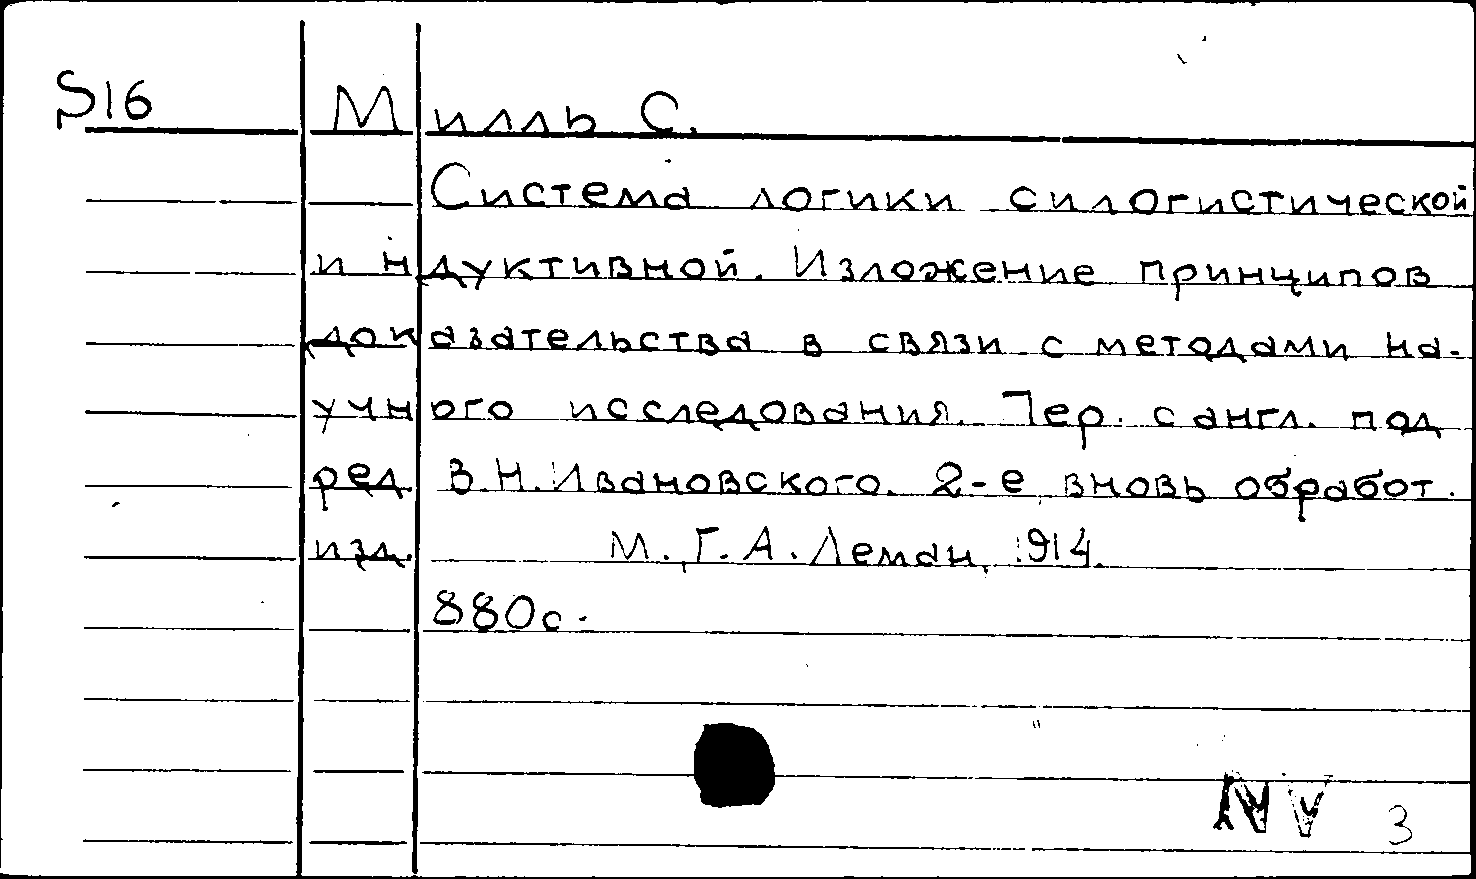 S16 Милль С.
Система логики силогистической
индуктивной. Изложение принципов
доказательства в связи с методами на-
учного исследования. Пер. с англ. под
ред. В.Н.Ивановского. 2-е вновь обработ.
изд. М., Г.А.Леман, 1914.
880с.
NV 3